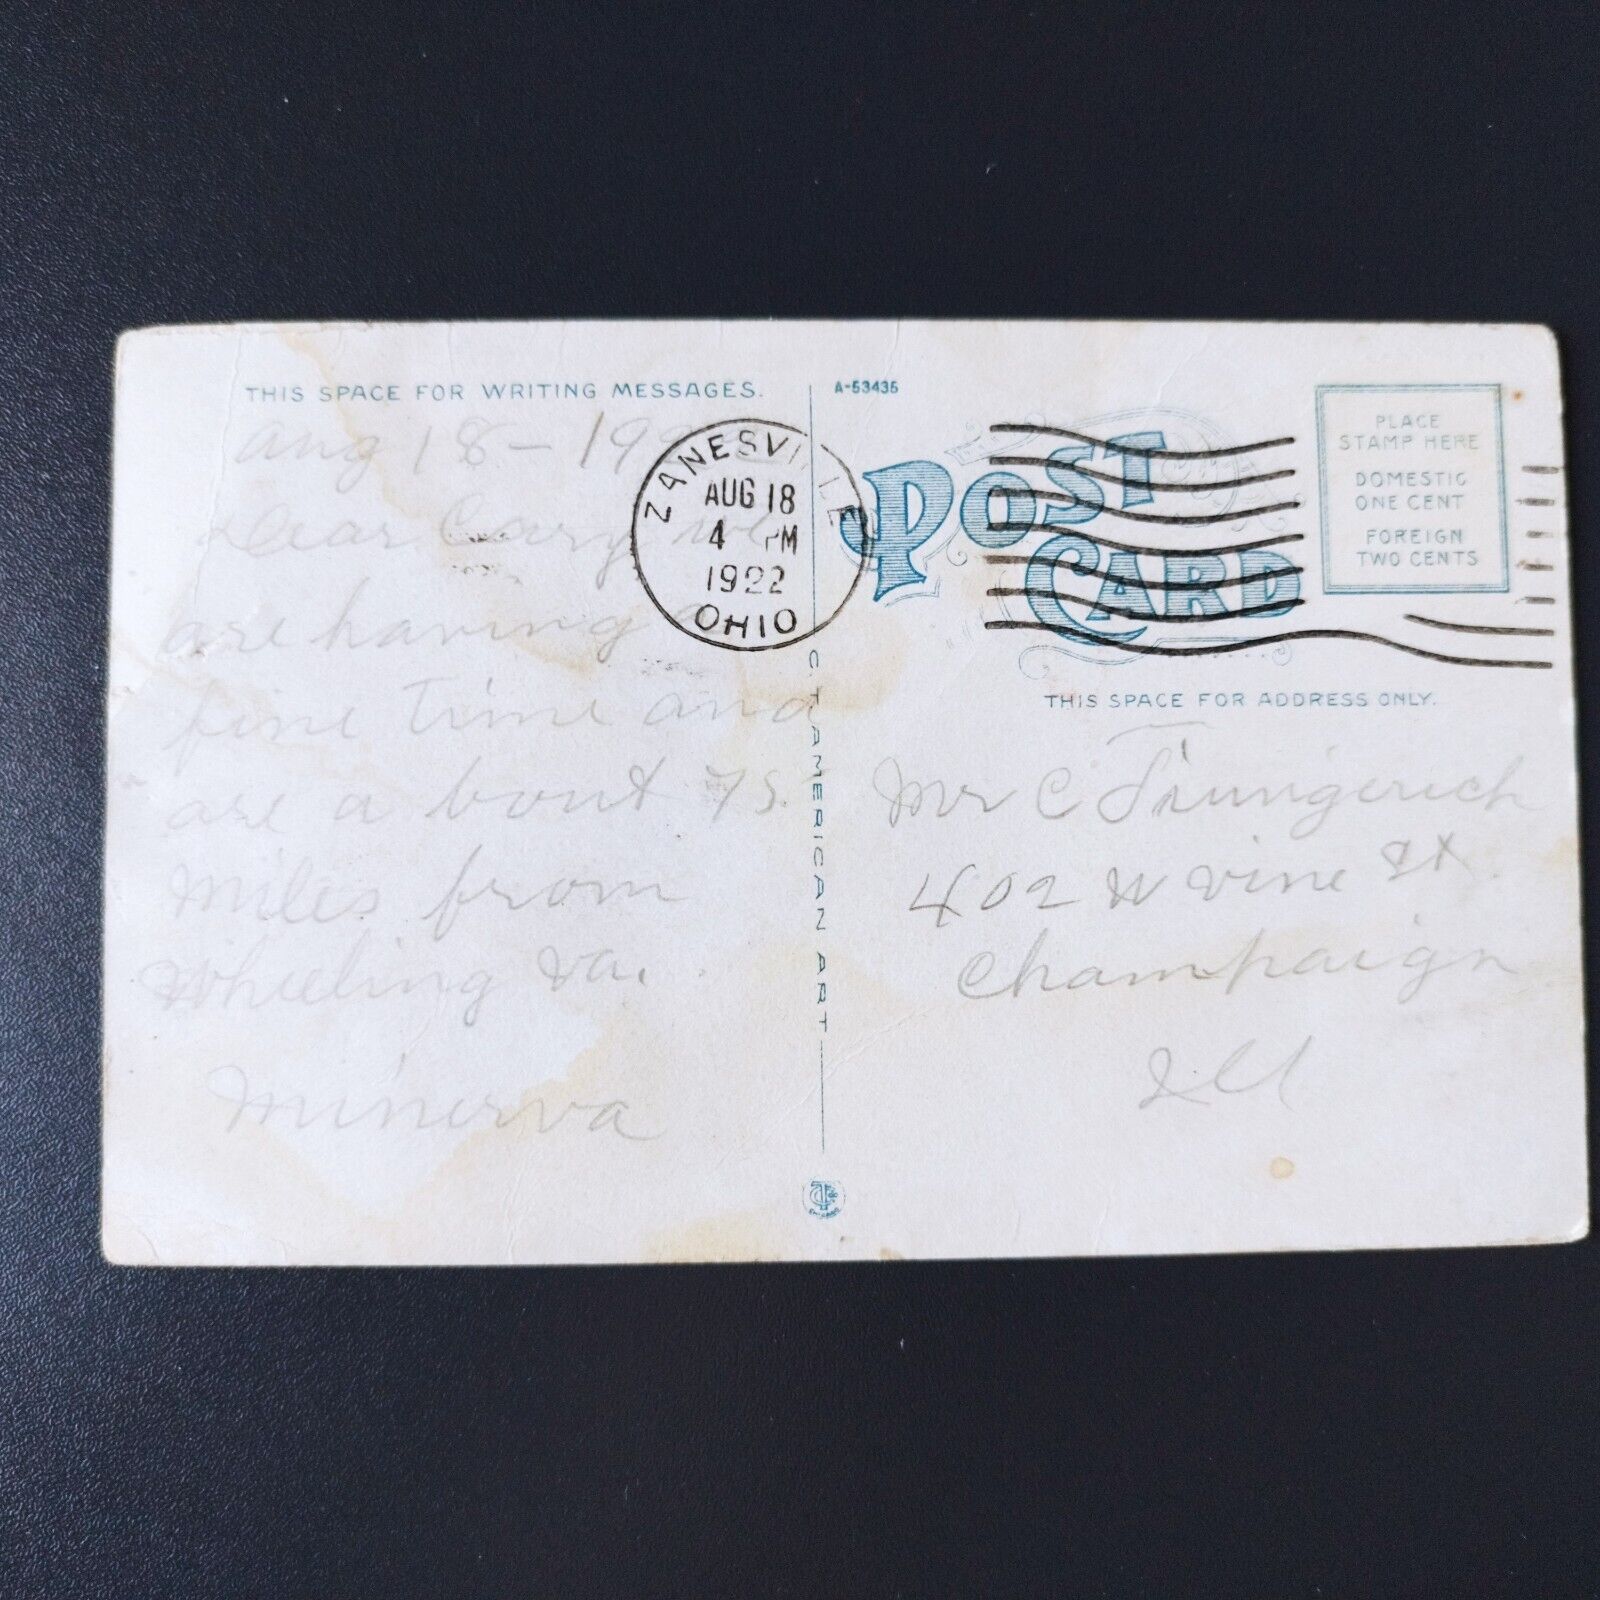 THIS SPACE FOR WRITING MESSAGES.
Aug 18 - 19
Dear Cary we
are having a
fine time and
are a bout 75
Miles from
Wheeling Va.
Minerva
ZANESVILLE
AUG 18
4 PM
1922
OHIO
C. T. AMERICAN ART
CHICAGO
A-53435
POST CARD
PLACE
STAMP HERE
DOMESTIC
ONE CENT
FOREIGN
TWO CENTS
THIS SPACE FOR ADDRESS ONLY.
Mr C
402 W Vine St
Champaign
Ill